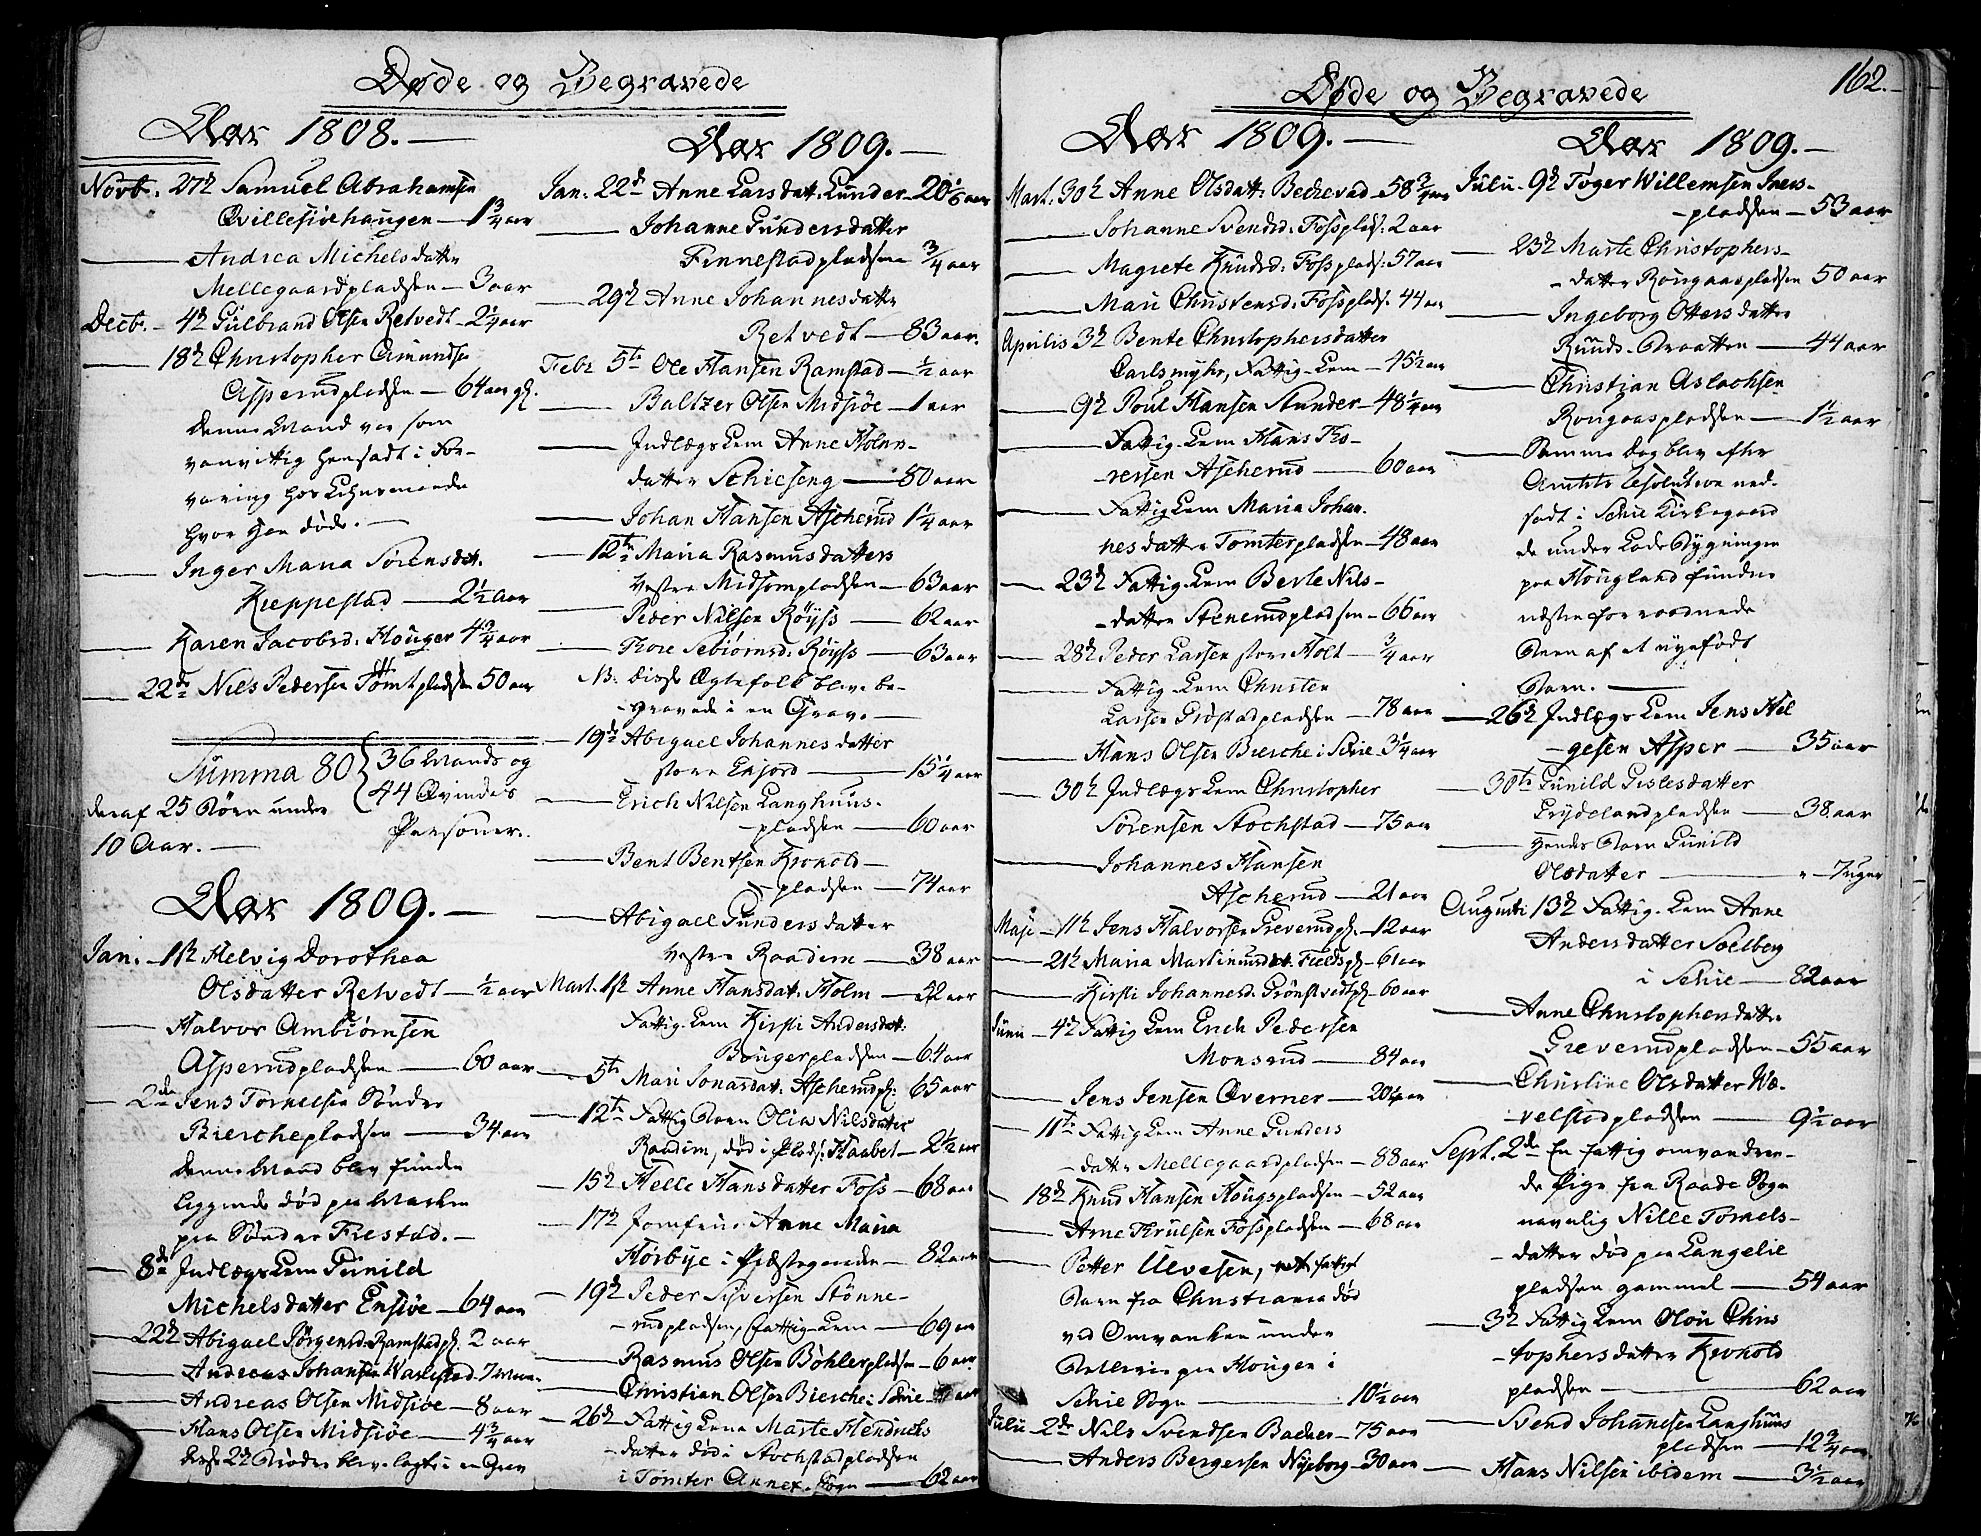 Døde og Begravede
Aar 1808.
Novb. 27de Samuel Abrahamsen
Qvillesiøehaugen 1 3/4 aar
Andrea Michelsdatter
Mellegaardpladsen 3 aar
Decb. 4de Gulbrand Olsen Retvedt 2 1/4 aar
18de Christopher Amundsen
Asperudpladsen 64 aar gl.
denne Mand var som
vanvittig hensadt i For-
varing hos Lehnsmanden
hvor han døde.
Inger Maria Sørensdat.
Kieppestad 2 1/2 aar
Karen Jacobsd. Houger 4 3/4 aar
22de Nils Pedersen Tomtpladsen 50 aar
Summa 80 { 36 Mands og
44 Qvinde
Personer.
deraf 25 Børn under
10 Aar.
Aar 1809.
Jan. 1ste Helvig Dorothea
Olsdatter Retvedt 1/2 aar
Halvor Ambiørnsen
Asperudpladsen 60 aar
2den Jens Tornelsen Sønder
Bierchepladsen 34 aar
denne Mand blev funden
liggende død paa Marken
paa Sønder Frestad.
8de Indlægs Lem Gunild
Michelsdatter Ensiøe 64 aar
22de Abigael Jørgensd. Ramstadpl. 2 aar
Andreas Johansen Varlestad 7 Maan.
Andreas Olsen Midsiøe 8 aar
Hans Olsen Midsiøe 4 3/4 aar
disse 2de Brødre blev lagte i en Grav
Aar 1809.
Jan. 22de Anne Larsdatt. Lunder 20 1/6 aar
Johanne Gundersdatter
Finnestadpladsen 3/4 aar
29de Anne Johannesdatter
Retvedt 83 aar.
Febr. 5te Ole Hansen Ramstad 1/2 aar
Baltzer Olsen Midsiøe 1 aar
Indlægs Lem Anne
datter Schieseng 80 aar
Johan Hansen Ascherud 1 1/4 aar
12te Maria Rasmusdatter
Vestre Midsompladsen 63 aar
Peder Nilsen Røyss 62 aar
Thore Sebiørnsd. Røyss 63 aar
NB. disse Ægtefolk blev be-
gravede i en Grav.
19de Abigael Johannesdatter
store Enjord 15 1/4 aar
Erich Nilsen Langhuus-
pladsen 60 aar
Bent Bentsen Kronold-
pladsen 74 aar
Abigael Gundersdatter
Vestre Raadim 38 aar
Mart. 1ste Anne Hansdat. Holm 22 aar
Fattig-Lem Kirsti Andersdat.
Bougerpladsen 64 aar
5te Mari Jonasdat. Ascherudpl. 65 aar
12te Fattig Barn Olia Nilsdatter
Raadim, død i Plads. Haabet 2 1/2 aar
15de Helle Hansdatter Foss 68 aar
17de Jomfrue Anne Maria
Hørbye i Præstegaarden 82 aar
19de Peder Siversen Stønne-
rudpladsen, fattig-Lem 69 aar
Rasmus Olsen Bøhlerpladsen 6 aar
Christian Olsen Bierche i Schie aar
26de Fattig Lem Marte Hendrichs
datter død i Stochstadpladsen
i Tomter Annex-Sogn 62 aar
Døde og Begravede
162.
Aar 1809.
Mart. 30te Anne Olsdatt. Bechevad 58 3/4 aar
Johanne Svendsd. Fosspladsn 2 aar
Magrete Knudsd. Fosspladsn 57 aar
Mari Christensd. Fosspladsn 44 aar
Aprilis 3de Bente Christophersdatter
Carlsmyhr, Fattig-Lem 45 1/2 aar
9de Poul Hansen Stunder 48 1/4 aar
Fattig-Lem Hans Tho-
resen Ascherud 60 aar
Fattig Lem Maria Johan-
nesdatter Tomterpladsen 48 aar
23de Fattig-Lem Berte Nils-
datter Stenerudpladsen 66 aar
28de Peder Larsen store Holt 3/4 aar
Fattig-Lem Christen
Larsen Grøstadpladsen 78 aar
Hans Olsen Bierche i Schie 3 1/4 aar
30te Indlægs Lem Christopher
Sørensen Stochstad 75 aar
Johannes Hansen
Ascherud 21 aar
Maji 11te Jens Halvorsen Greverudpl. 12 aar
21de Maria Martinusdat. Fieldspl. 61 aar
Kirsti Johannesd. Grønstvedtpl. 60 aar
Junii 4de Fattig Lem Erich Pedersen
Monsrud 84 aar
Jens Jensen Qverner 20 1/4 aar
11te Fattig Lem Anne Gunders
datter Mellegaardpladsen 88 aar
18de Knud Hansen Hougspladsen 52 aar
Arne Thrulsen Fosspladsen 68 aar
Petter Ulvesen, et fattigt
Barn fra Christiania død
ved Omvanken under
Betlerie paa Hougen i
Schie Sogn 10 1/2 aar
Julii 2de Nils Svendsen Bacher 75 aar
Anders Bergersen Nyeborg 30 aar
Aar 1809.
Julii 9de Toger Willemsen Iners-
pladsen 53 aar
23de Marte Christophers-
datter Rongaaspladsen 50 aar
Ingeborg Ottersdatter
Ruuds-Braatten 44 aar
Christian Aslachsen
Rongaaspladsen 1 1/2 aar
Samme dag blev efter
Amtets Resolution ned-
sadt i Schie Kirkegaard
de under Lade Bygningen
paa Hougland fundne
næsten forraadnede
Been af et nyefødt
Barn.
26de Indlægs Lem Jens Hel
gesen Asper 35 aar
30te Gunild Gislesdatter
Frydelandpladsen 38 aar
hendes Barn Gunild
Olsdatter 7 uger
Augusti 13de Fattig-Lem Anne
Andersdatter Solberg
i Schie 82 aar
Anne Christophersdatter
Greverudpladsen 55 aar
Christine Olsdatter Wæ-
velstadpladsen 9 1/2 aar
Sept. 2de En fattig omvandren-
de Pige fra Raade Sogn
navnlig Nille Tornels-
datter død paa Langelie
pladsen gammel 54 aar
3de Fattig Lem Olou Chris
tophersdatter Kronold
pladsen 62 aar
Svend Johannesen Langhuus
pladsen 12 3/4 aar
Hans Nilsen ibidem 3 1/2 aar